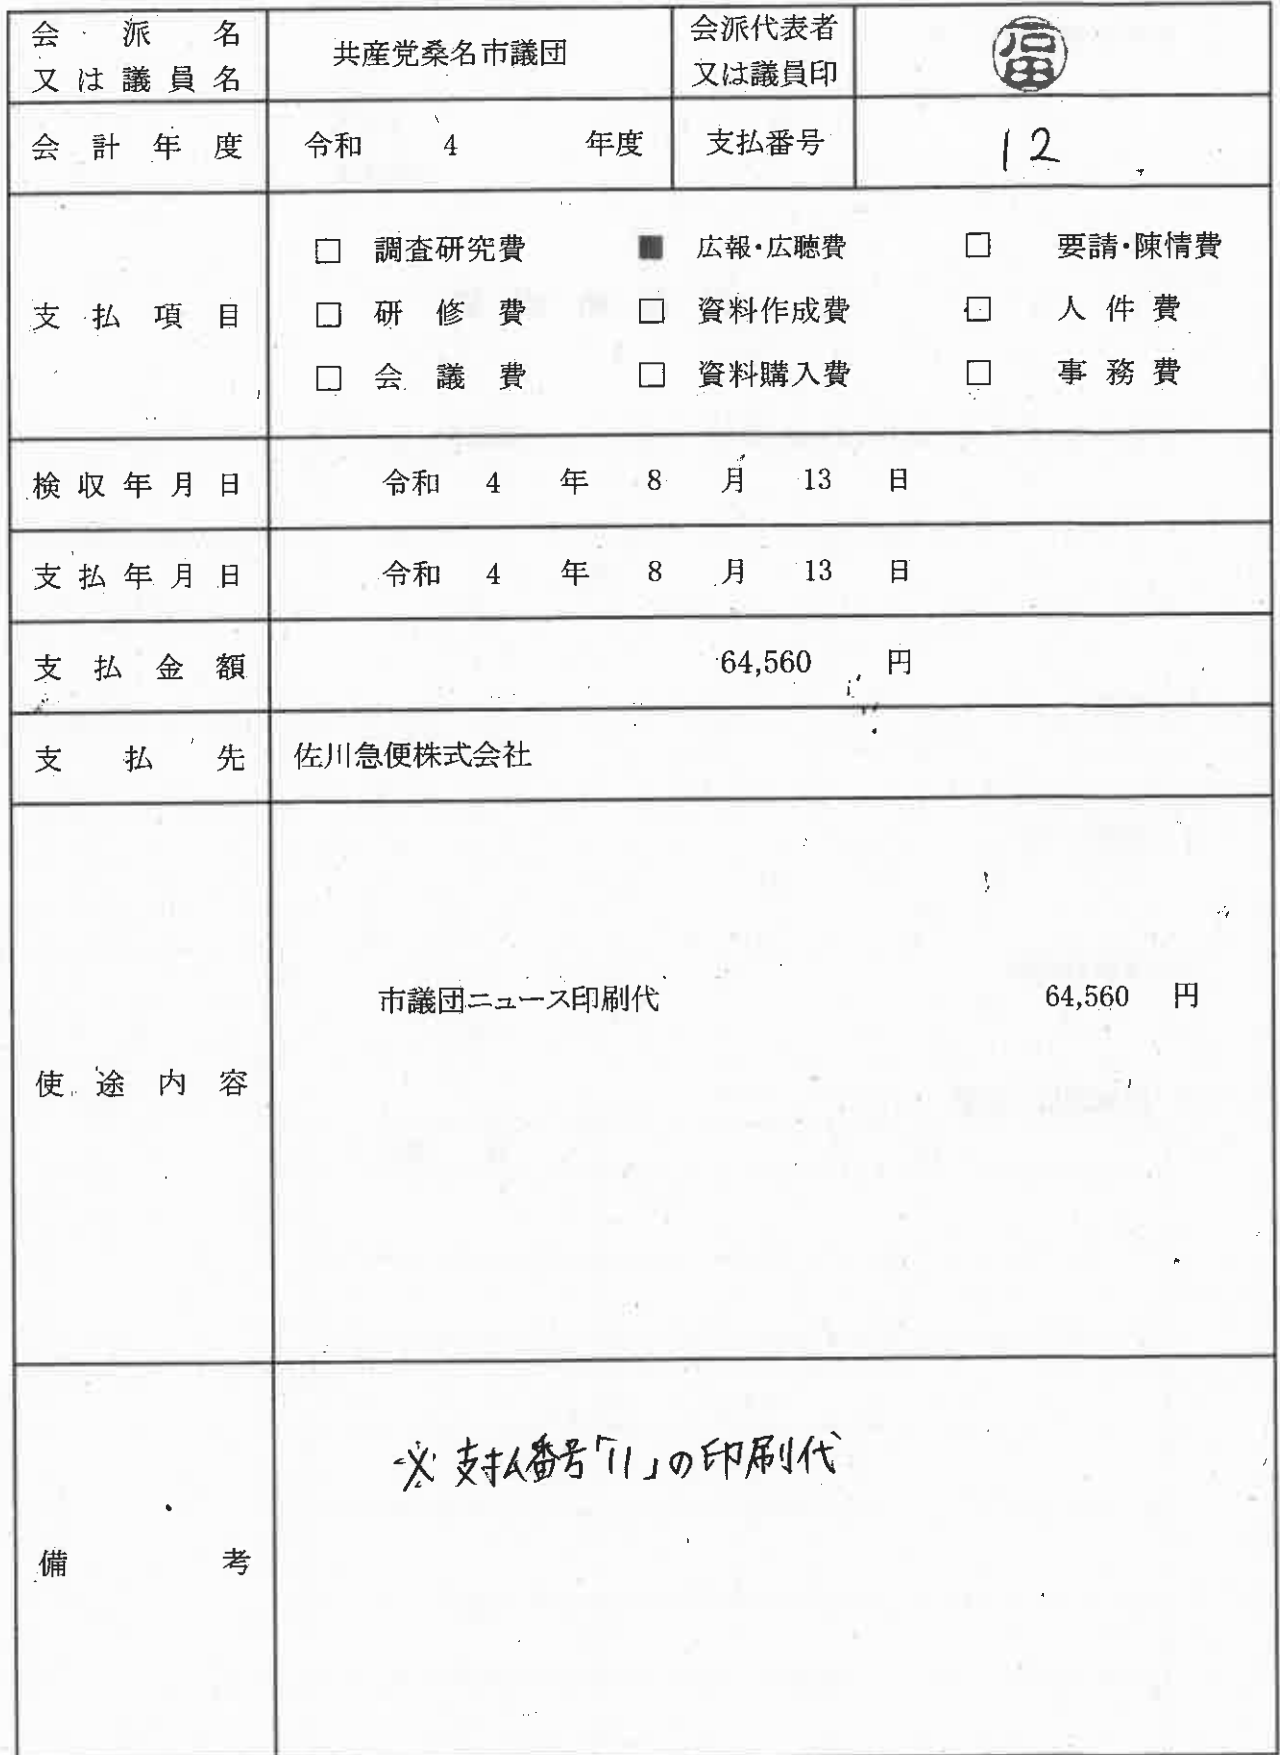 会派名 共産党桑名市議団 会派代表者
又は議員名 又は議員印
会計年度 令和 4 年度 支払番号 12
□ 調査研究費 ■ 広報・広聴費 □ 要請・陳情費
支払項目 □ 研修費 □ 資料作成費 □ 人件費
□ 会議費 □ 資料購入費 □ 事務費
検収年月日 令和 4 年 8 月 13 日
支払年月日 令和 4 年 8 月 13 日
支払金額 64,560 円
支払先 佐川急便株式会社
市議団ニュース印刷代 64,560 円
使途内容
※ 支払番号「11」の印刷代
備考